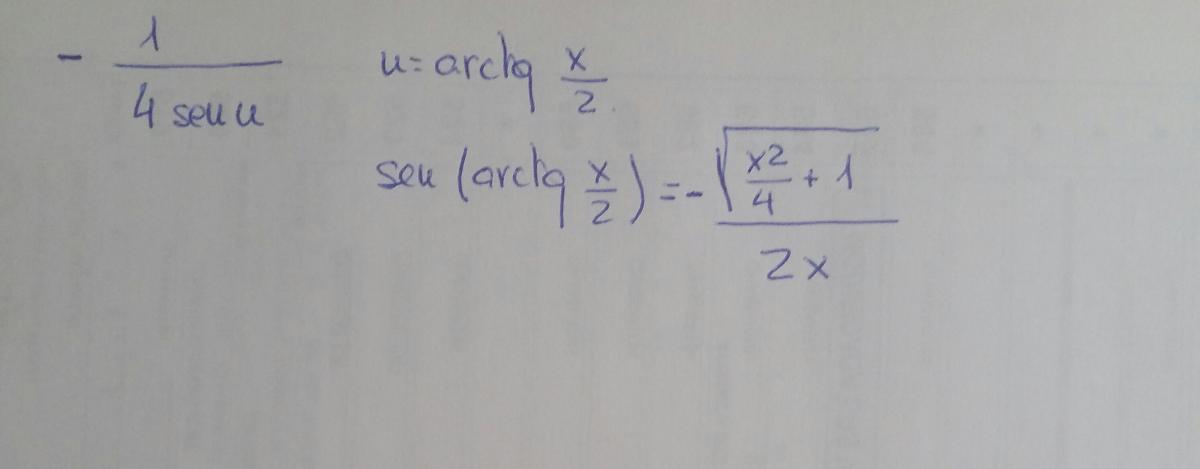 - 1 / 4 sen u
u = arctg x/2
sen (arctg x/2) = - √(x²/4 + 1) / 2x